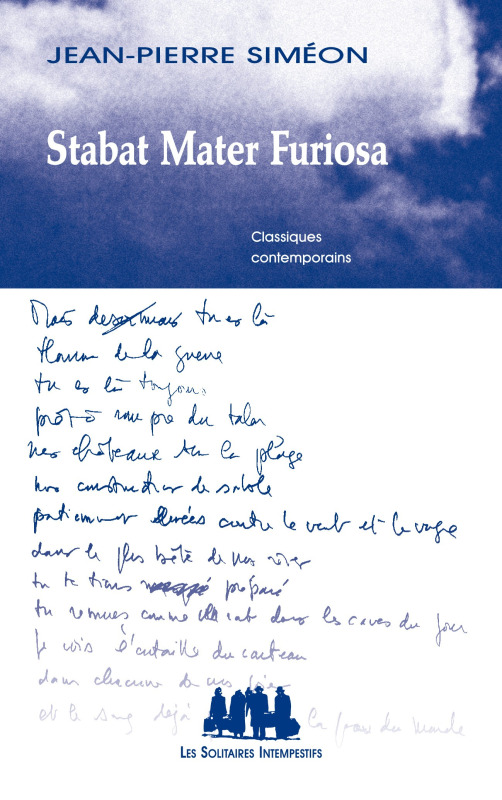 JEAN-PIERRE SIMÉON
Stabat Mater Furiosa
Classiques
contemporains
Mais desormais tu es là
Homme de la guerre
tu es là toujours
prêt à rompre du talon
nos châteaux sur la plage
nos constructions de sable
patiemment élevées contre le vent et la vague
dans le plus bête de nos rires
tu te tiens préparé
tu remues comme un rat dans les caves du jour
je vois l'entaille du couteau
dans chacune de nos
et le sang déjà la du monde
LES SOLITAIRES INTEMPESTIFS